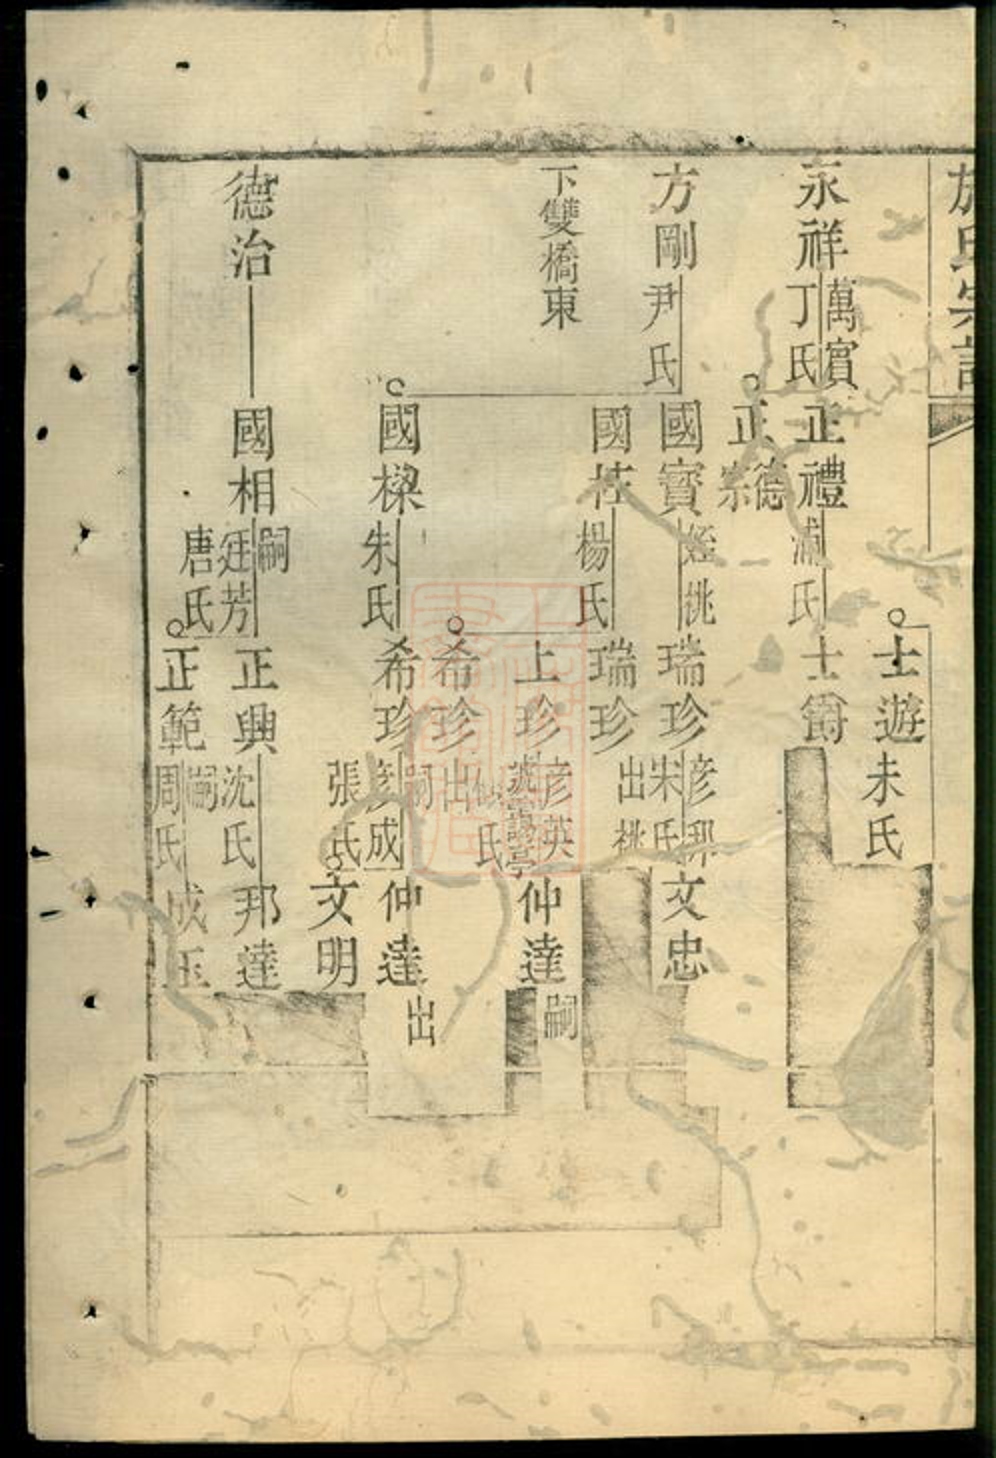 施氏宗譜
士遊 未氏
永祥 萬實 丁氏
正禮 浦氏
士爵
正德
宗
方剛 尹氏
國寶 姚
瑞珍 彦邦 宋氏
文忠
國桂 楊氏
瑞珍 出祧
下雙橋東
上珍 彦英 氏
仲達 嗣
希珍 出
國樑 朱氏
希珍 嗣 彦成 張氏
仲達 出
文明
德治
國相 嗣 廷芳 唐氏
正興 沈氏
邦達
正範 嗣 周氏
成玉